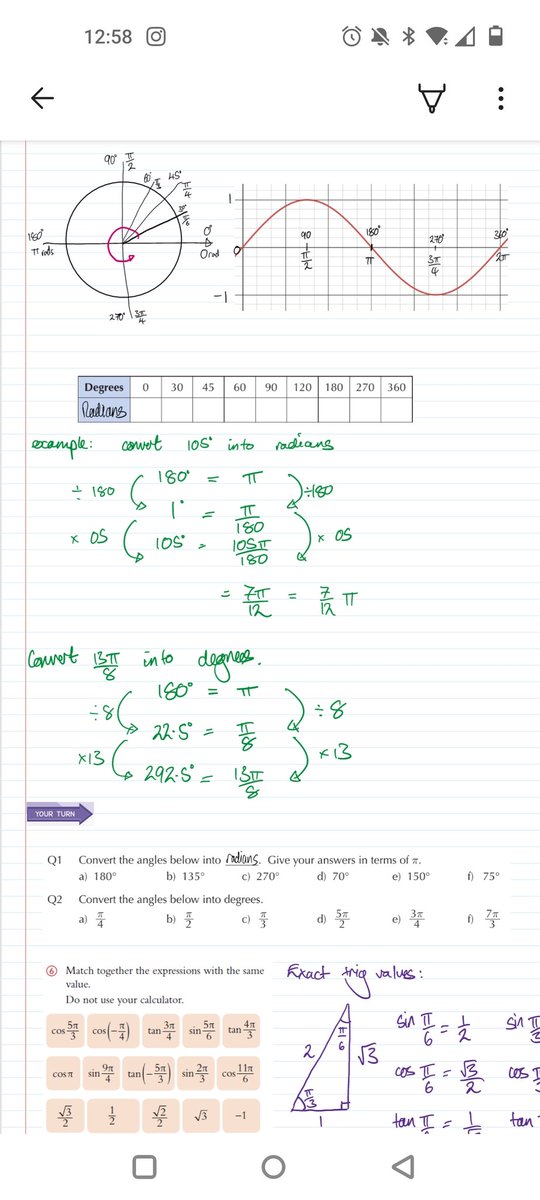 12:58
90° π/2
60° π/3 45° π/4
π/6
180° π rads
0° 0 rad
270° 3π/4
1
0
90 π/2
180° π
270° 3π/4
360° 2π
-1
Degrees 0 30 45 60 90 120 180 270 360
Radians
example: convert 105° into radians
÷ 180 180° = π ÷180
1° = π/180
x 05 105° = 105π/180 x 05
= 7π/12 = 7/12 π
Convert 13π/8 into degrees.
180° = π
÷8 ÷8
22.5° = π/8
x13 x13
292.5° = 13π/8
YOUR TURN
Q1 Convert the angles below into radians. Give your answers in terms of π.
a) 180° b) 135° c) 270° d) 70° e) 150° f) 75°
Q2 Convert the angles below into degrees.
a) π/4 b) π/2 c) π/3 d) 5π/2 e) 3π/4 f) 7π/3
6 Match together the expressions with the same
value.
Do not use your calculator.
cos 5π/3 cos(-π/4) tan 3π/4 sin 5π/6 tan 4π/3
cos π sin 9π/4 tan(-5π/3) sin 2π/3 cos 11π/6
√3/2 1/2 √2/2 √3 -1
Exact trig values:
2 π/6 √3
π/3
1
sin π/6 = 1/2 sin π/3
cos π/6 = √3/2 cos
tan π/6 = 1/ tan